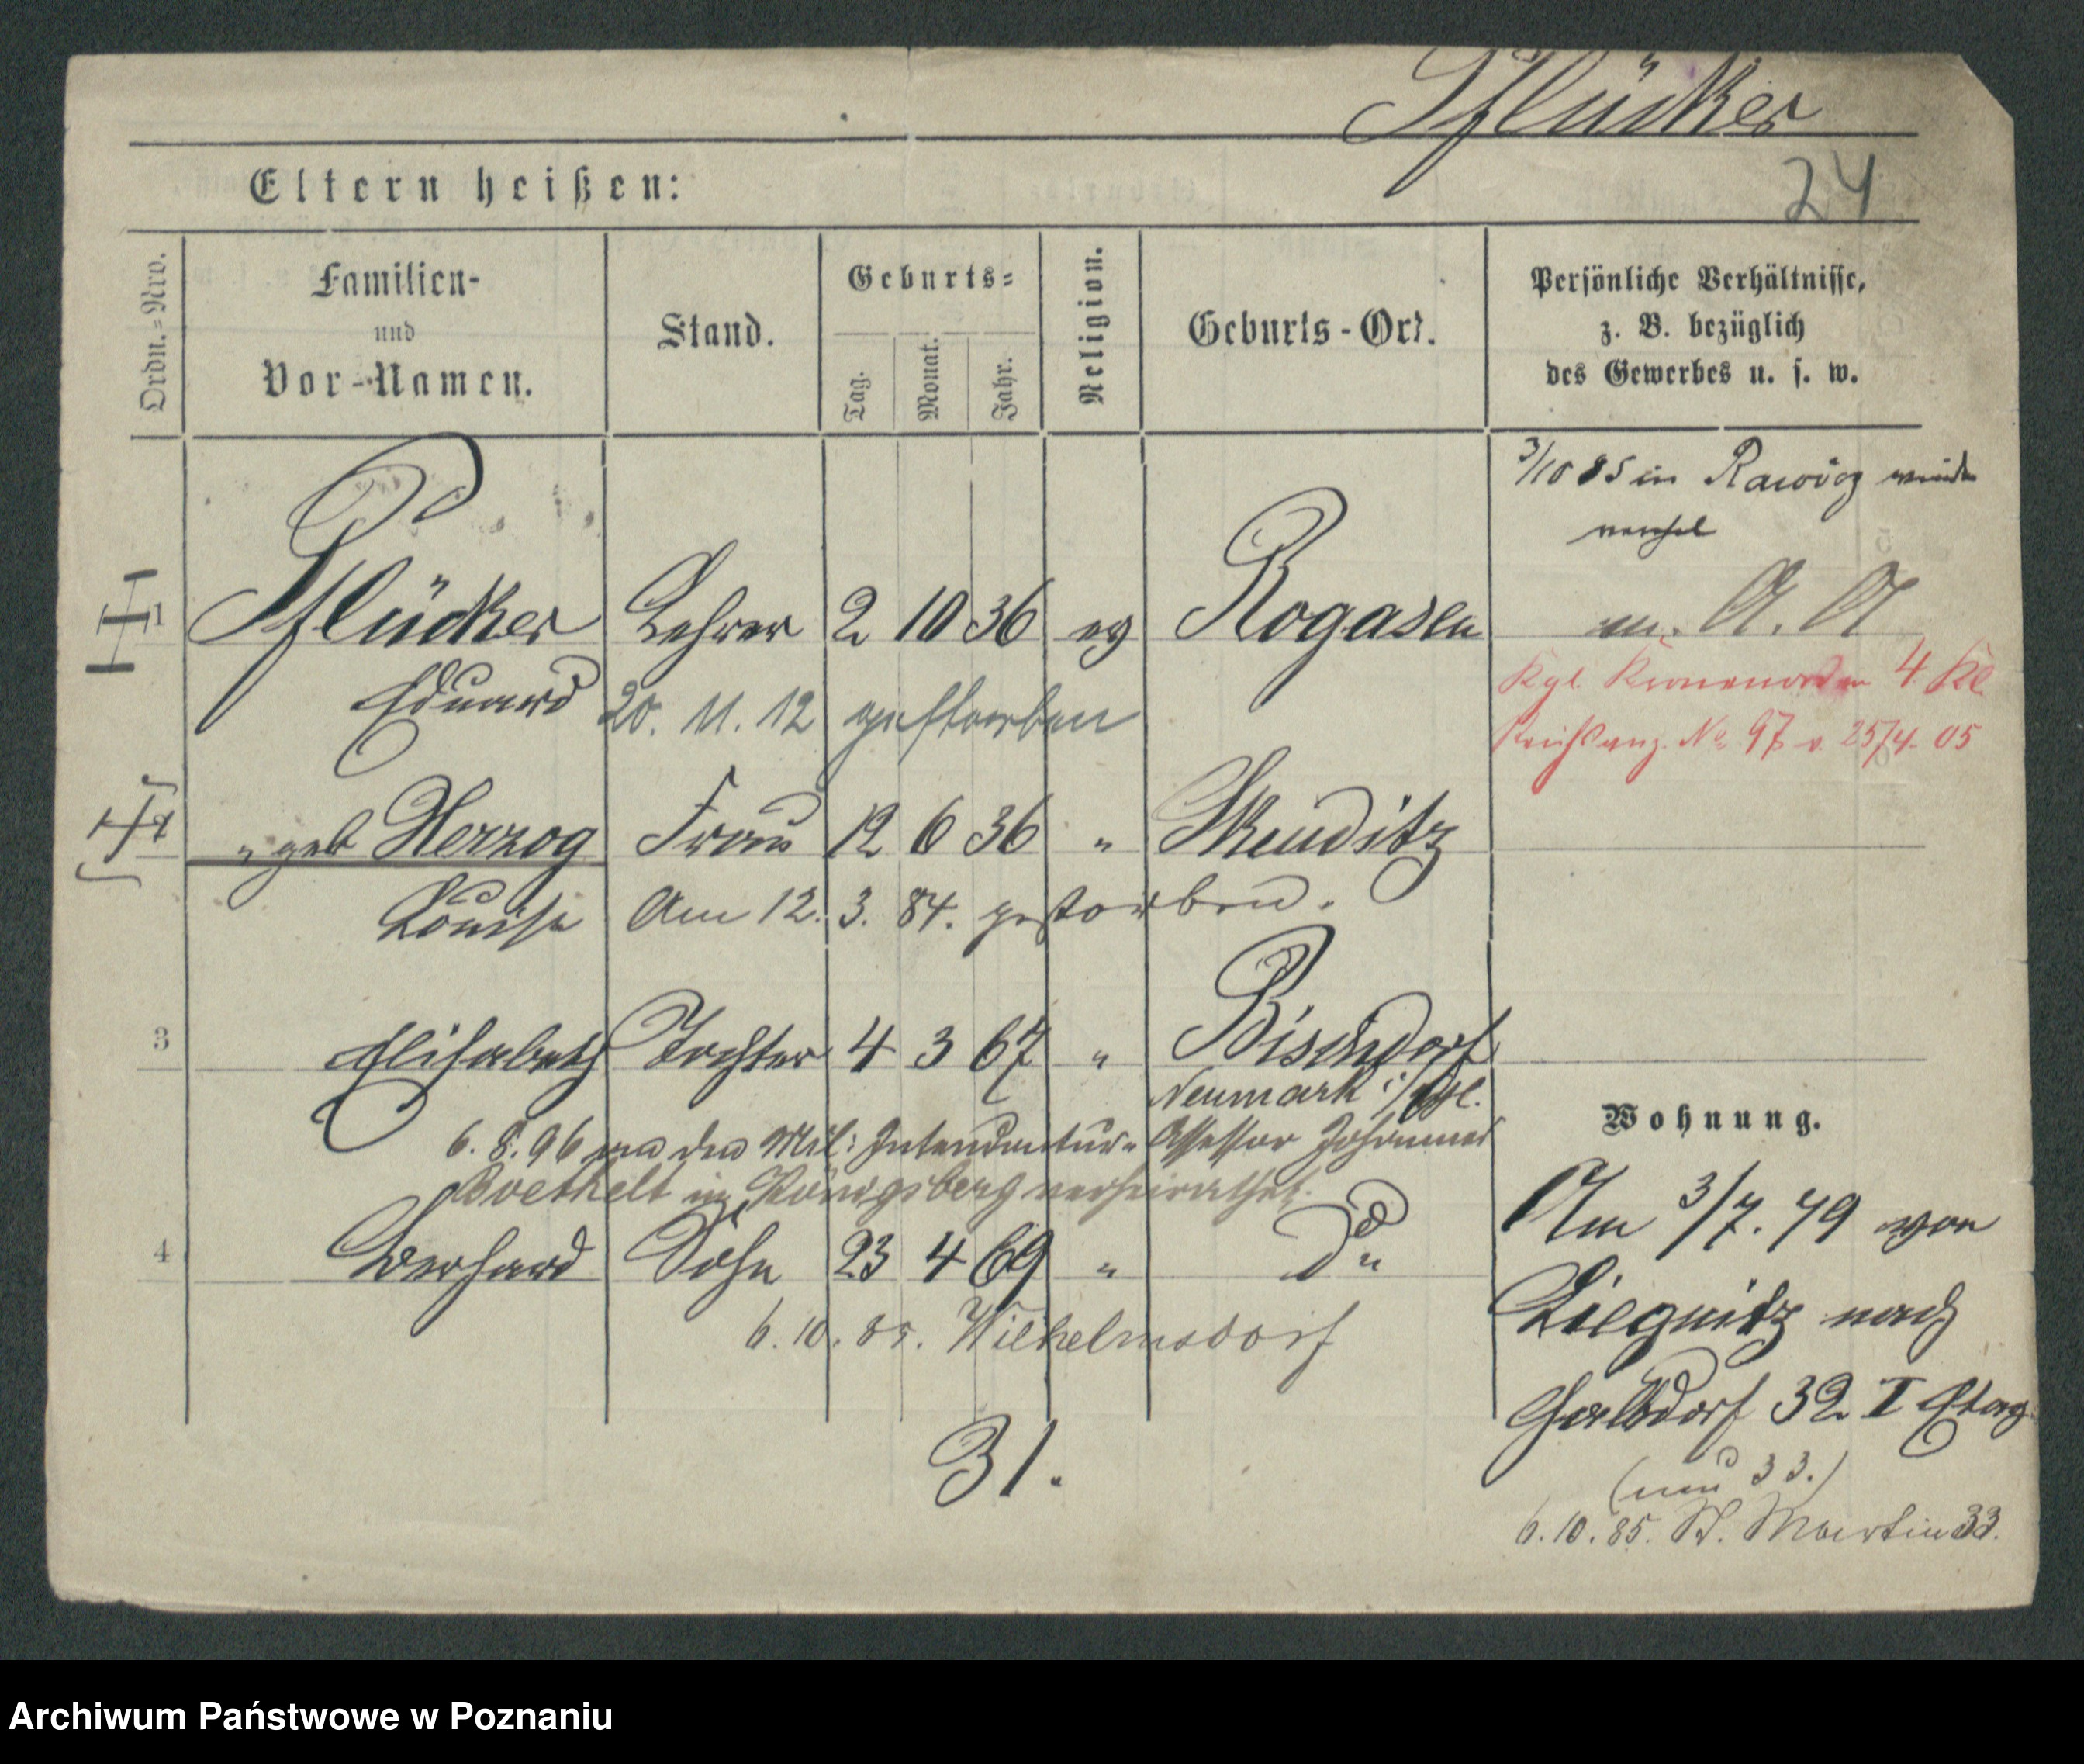 Pflücker
24
Eltern heißen:
Ordn.=Nro.
Familien-
und
Vor-Namen.
Stand.
Geburts=
Tag.
Monat.
Jahr.
Religion.
Geburts-Ort.
Persönliche Verhältnisse,
z. B. bezüglich
des Gewerbes u. s. w.
3/10 85 in Rawicz
1 Pflücker Lehrer 2 10 36 ev Rogasen
Eduard 20. 11. 12 gestorben
A. A
Kgl. Kronenorden 4 Kl
Reichsanz. No 97 v. 25/4. 05
2 " geb Herzog Frau 12 6 36 " Skeuditz
Louise Am 12. 3. 84. gestorben.
3 Elisabeth Tochter 4 3 67 " Bischdorf
Neumark i/Schl.
6. 8. 96 den Mil: Intendantur= Assessor Johannes
Boethelt in Königsberg verheirathet.
4 Gerhard Sohn 23 4 69 " do
6. 10. 85. Wilhelmsdorf
Wohnung.
Am 3/7. 79 von
Liegnitz nach
Halbdorf 32 I Etag
(neu 33.)
6. 10. 85. St. Martin 33.
31.
Archiwum Państwowe w Poznaniu